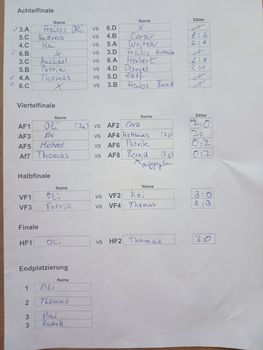 Achtelfinale
Name Name Sätze
3.A Freilos Oli vs 6.D X
5.C Andreas vs 4.B Cora 0:2
4.C Kai vs 5.A Walter 2:0
6.B X vs 3.D Freilos Matthias
3.C Michael vs 6.A Herbert 2:0
5.B Patrik vs 4.D Cord 2:
4.A Thomas vs 5.D Ralf
6.C X vs 3.B Freilos Bernd
Viertelfinale
Name Name Sätze
AF1 Oli (3a) vs AF2 Cora 2:0
AF3 Kai vs AF4 Matthias (3D) 2:
AF5 Michael vs AF6 Patrik 0:2
Af7 Thomas vs AF8 Bernd (3b) 0:2
Halbfinale
Name Name
VF1 Oli vs VF2 Kai 3:0
VF3 Patrik vs VF4 Thomas 1:3
Finale
Name Name
HF1 Oli vs HF2 Thomas 3:0
Endplatzierung
Name
1 Oli
2 Thomas
3 Kai
3 Patrik